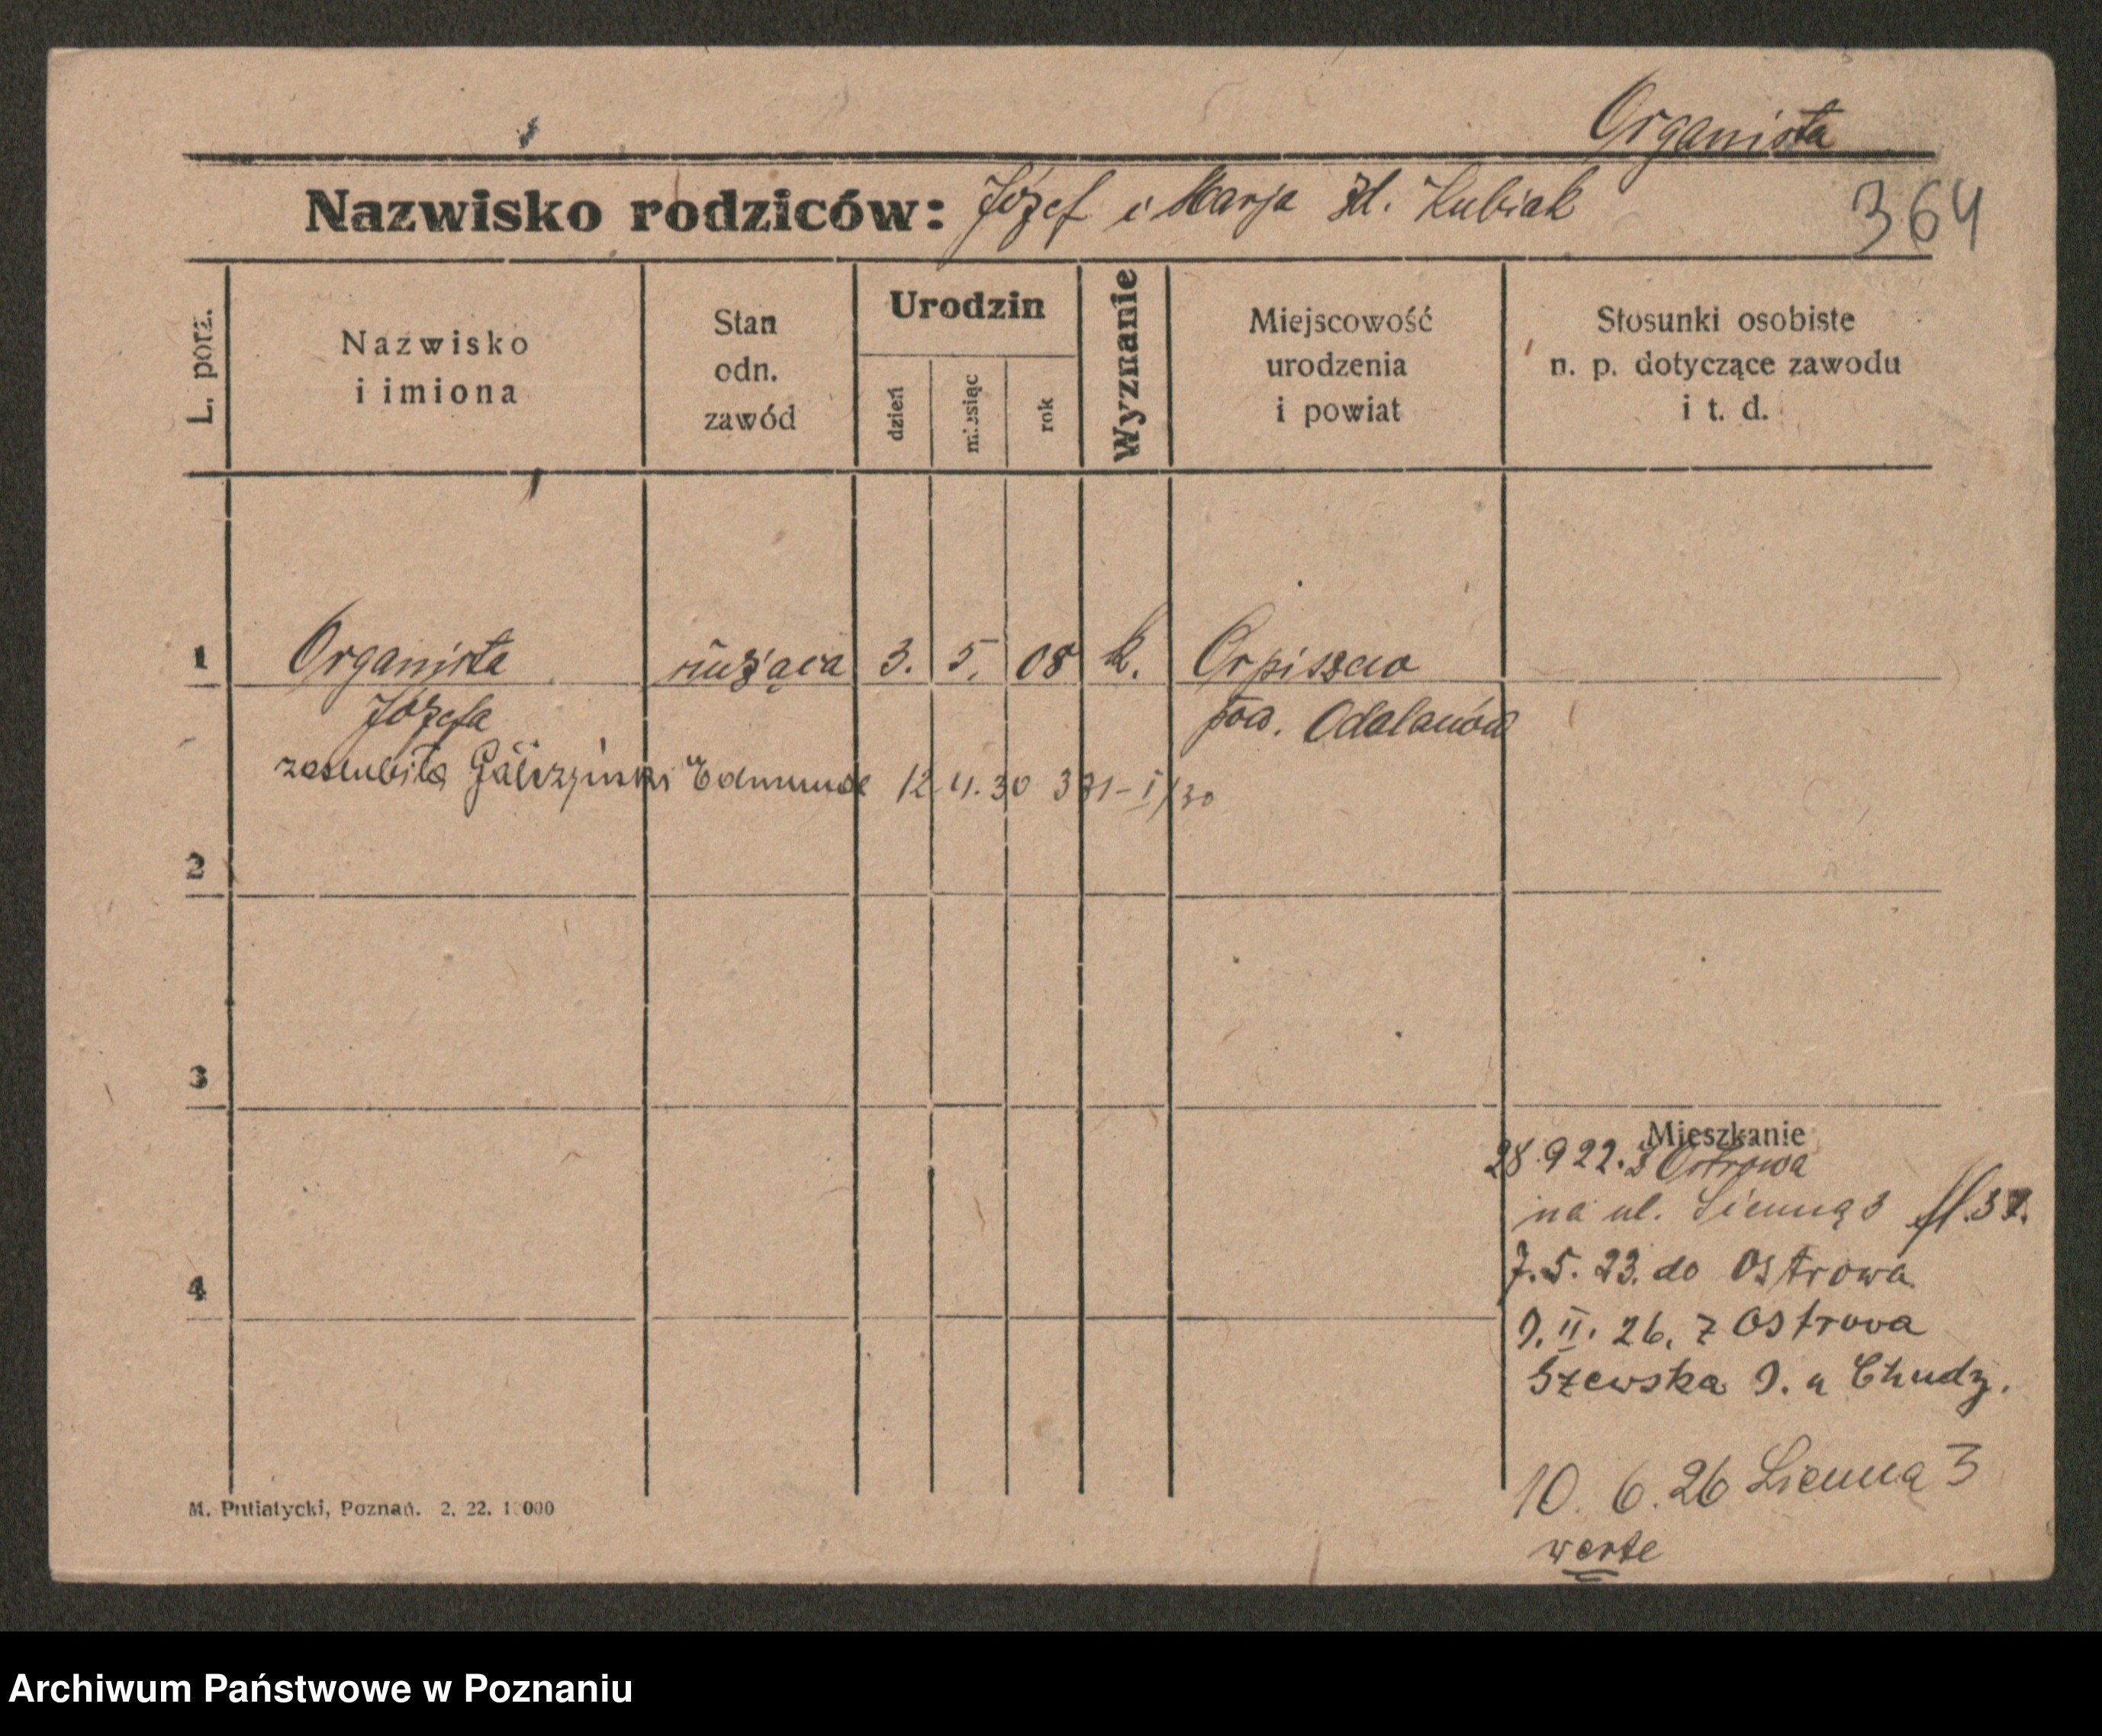 Organista
Nazwisko rodziców: Józef i Marja zd. Kubiak
364
L. porz.
Nazwisko
i imiona
Stan
odn.
zawód
Urodzin
dzień
miesiąc
rok
Wyznanie
Miejscowość
urodzenia
i powiat
Stosunki osobiste
n. p. dotyczące zawodu
i t. d.
1 Organista służąca 3. 5. 08 k. Orpiszew
Józefa pow. Odolanów
zaślubiła Edmunda 12 4. 30 371-I/30
2
3
4
Mieszkanie
28 9 22. z Ostrowa
na ul. Sienną 3
7. 5. 23. do Ostrowa
9. II. 26. z Ostrowa
Szewska 9. u Chudz.
10. 6. 26 Sienna 3
verte
M. Putiatycki, Poznań. 2. 22. 10000
Archiwum Państwowe w Poznaniu